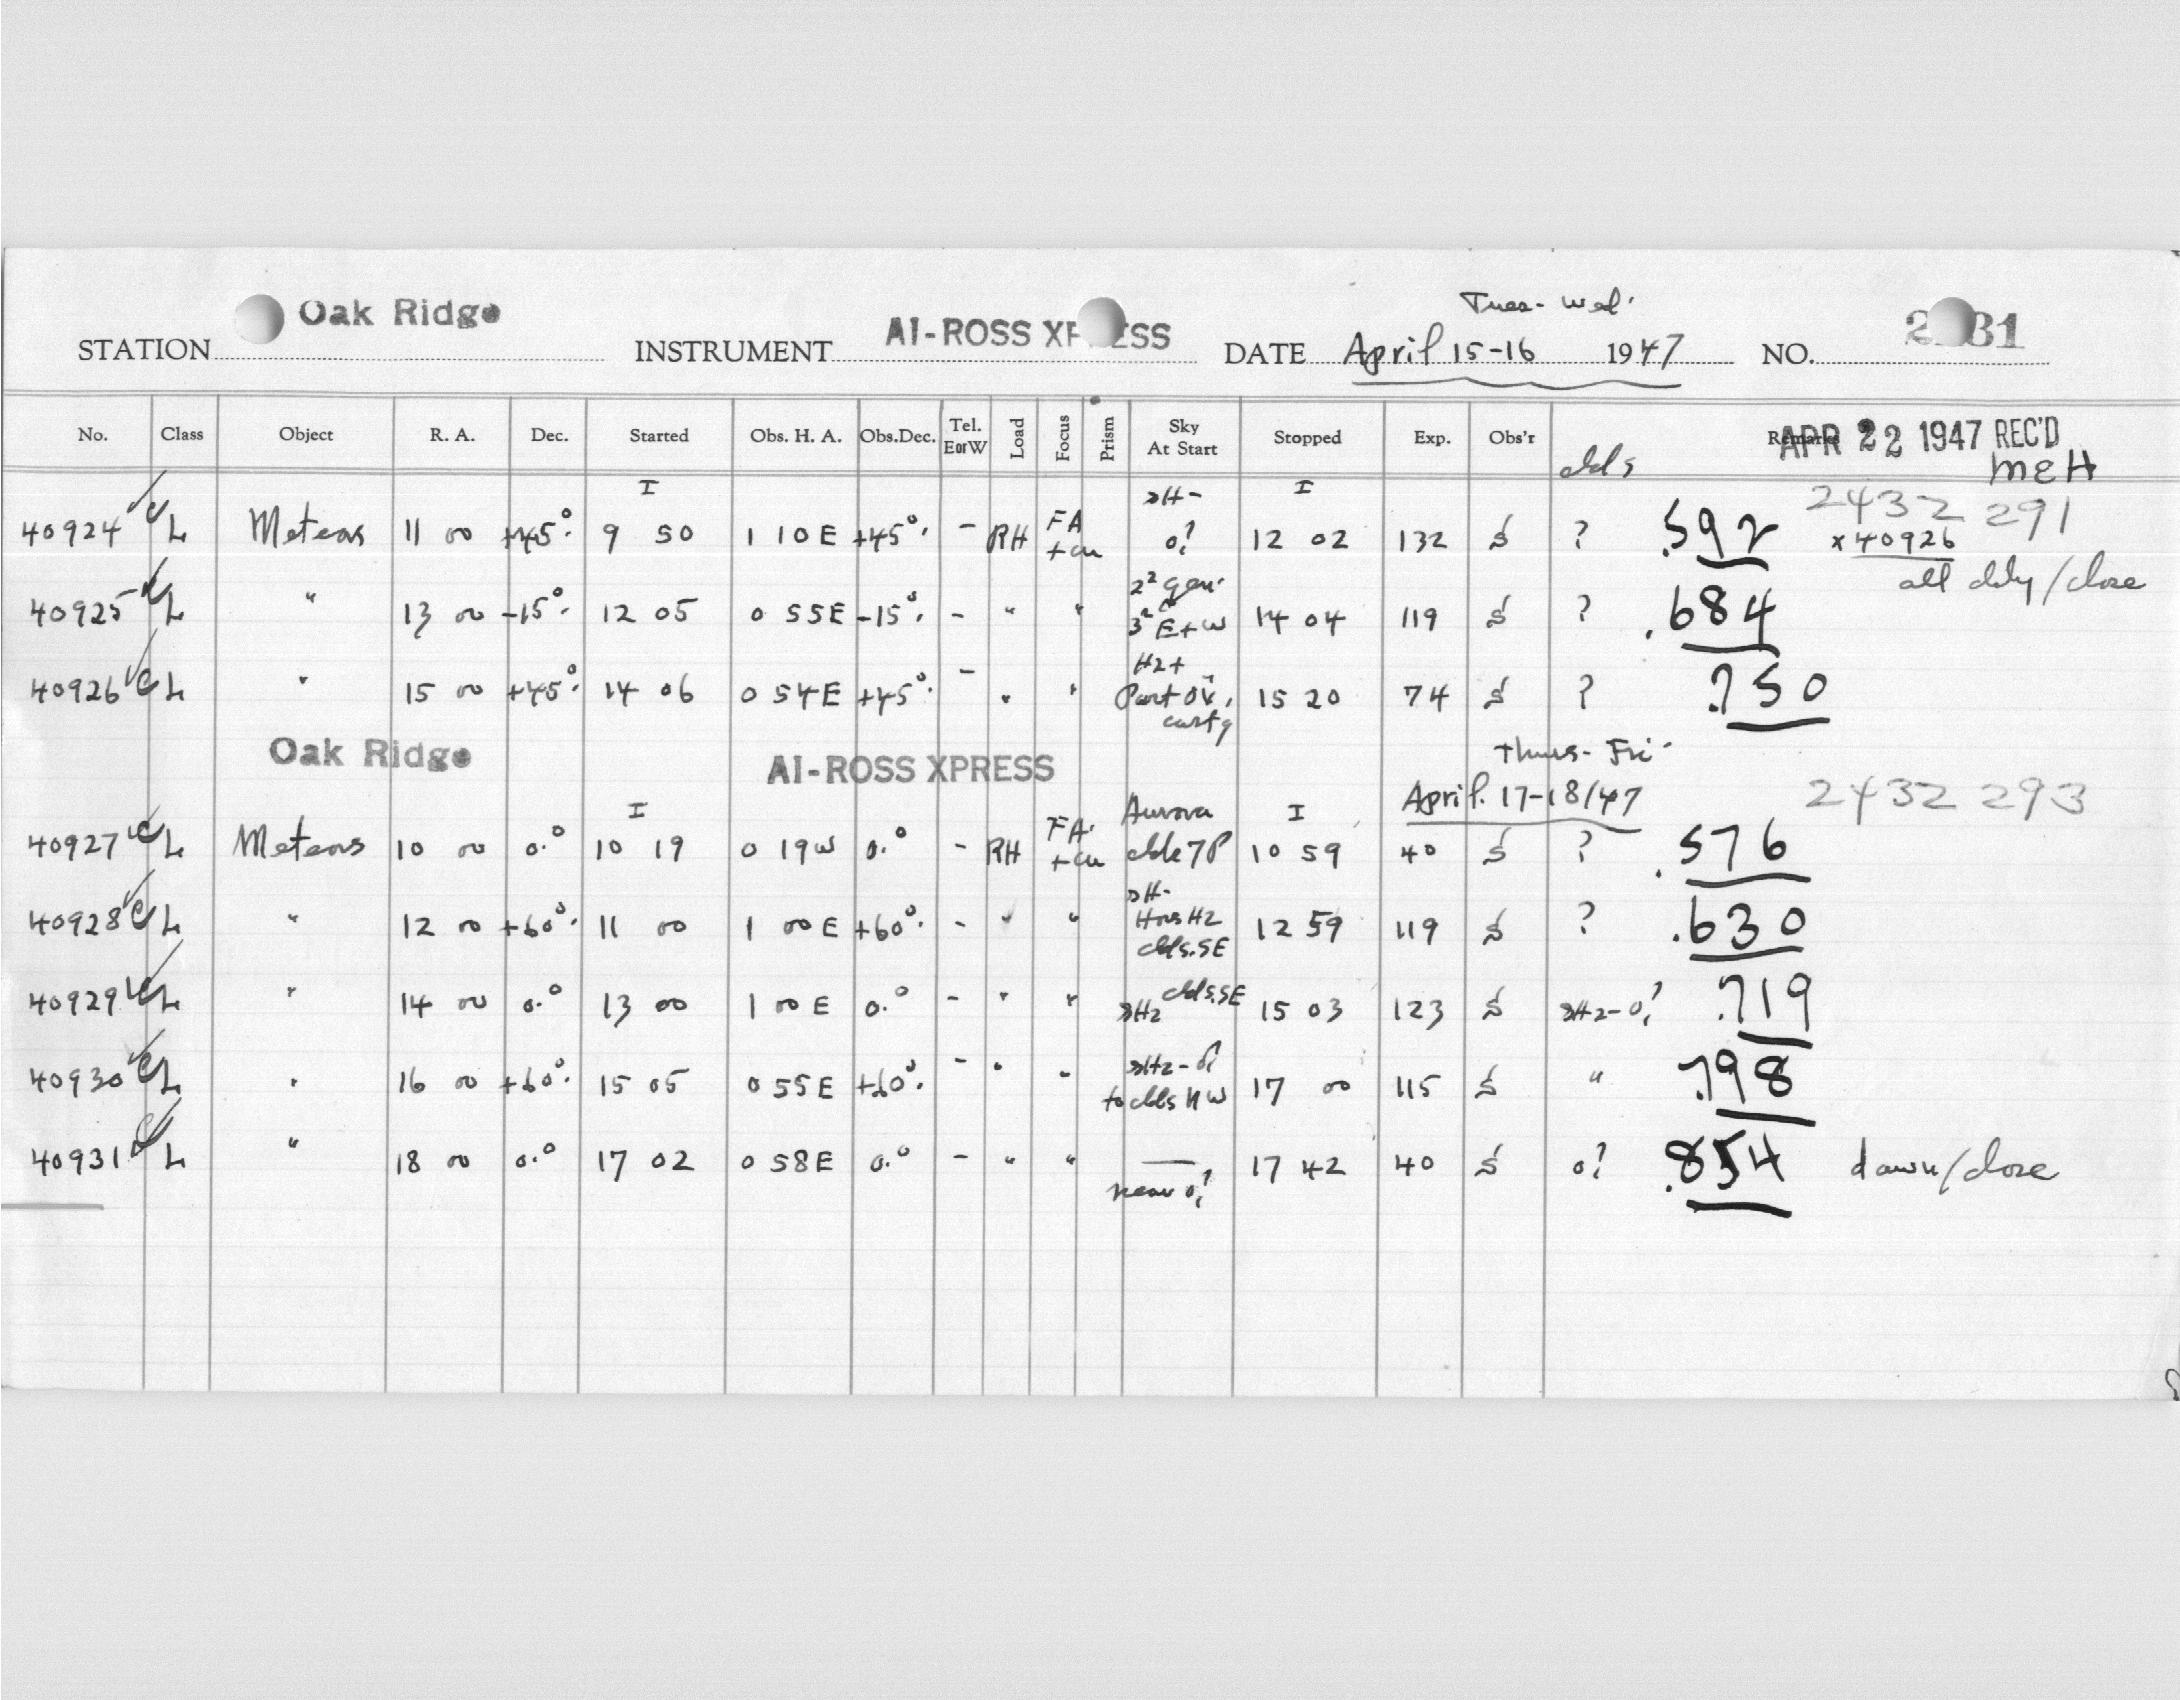 Oak Ridge
Tues- Wed.
STATION INSTRUMENT AI-ROSS XP ESS DATE April 15-16 1947 NO. 2 31
No. Class Object R. A. Dec. Started Obs. H. A. Obs.Dec. Tel. EorW Load Focus Prism Sky At Start Stopped Exp. Obs'r Remarks
APR 22 1947 REC'D
MEH
I I 2432 291
40924 L Meteors 11 00 +45°. 9 50 1 10 E +45°. - RH FA 0? 12 02 132 S ? .592 x 40926
all cldy/close
40925 L " 13 00 -15°. 12 05 0 55E -15°. - " " 3² E+W 14 04 119 S ? .684
40926 L " 15 00 +45°. 14 06 0 54E +45°. - " " H2+ Part 15 20 74 S ? .750
Oak Ridge AI-ROSS XPRESS Thurs- Fri-
April. 17-18/47 2432 293
I Aurora I
40927 L Meteors 10 00 0.° 10 19 0 19W 0.° - RH FA 10 59 40 S ? .576
40928 L " 12 00 +60°. 11 00 1 00 E +60°. - " " H2 clds.SE 12 59 119 S ? .630
40929 L " 14 00 0.° 13 00 1 00 E 0.° - " " clds.SE 15 03 123 S .719
40930 L " 16 00 +60°. 15 05 0 55E +60°. - " " to clds NW 17 00 115 S " .798
40931 L " 18 00 0.° 17 02 0 58E 0.° - " " — near 0? 17 42 40 S 0? .854 dawn/close